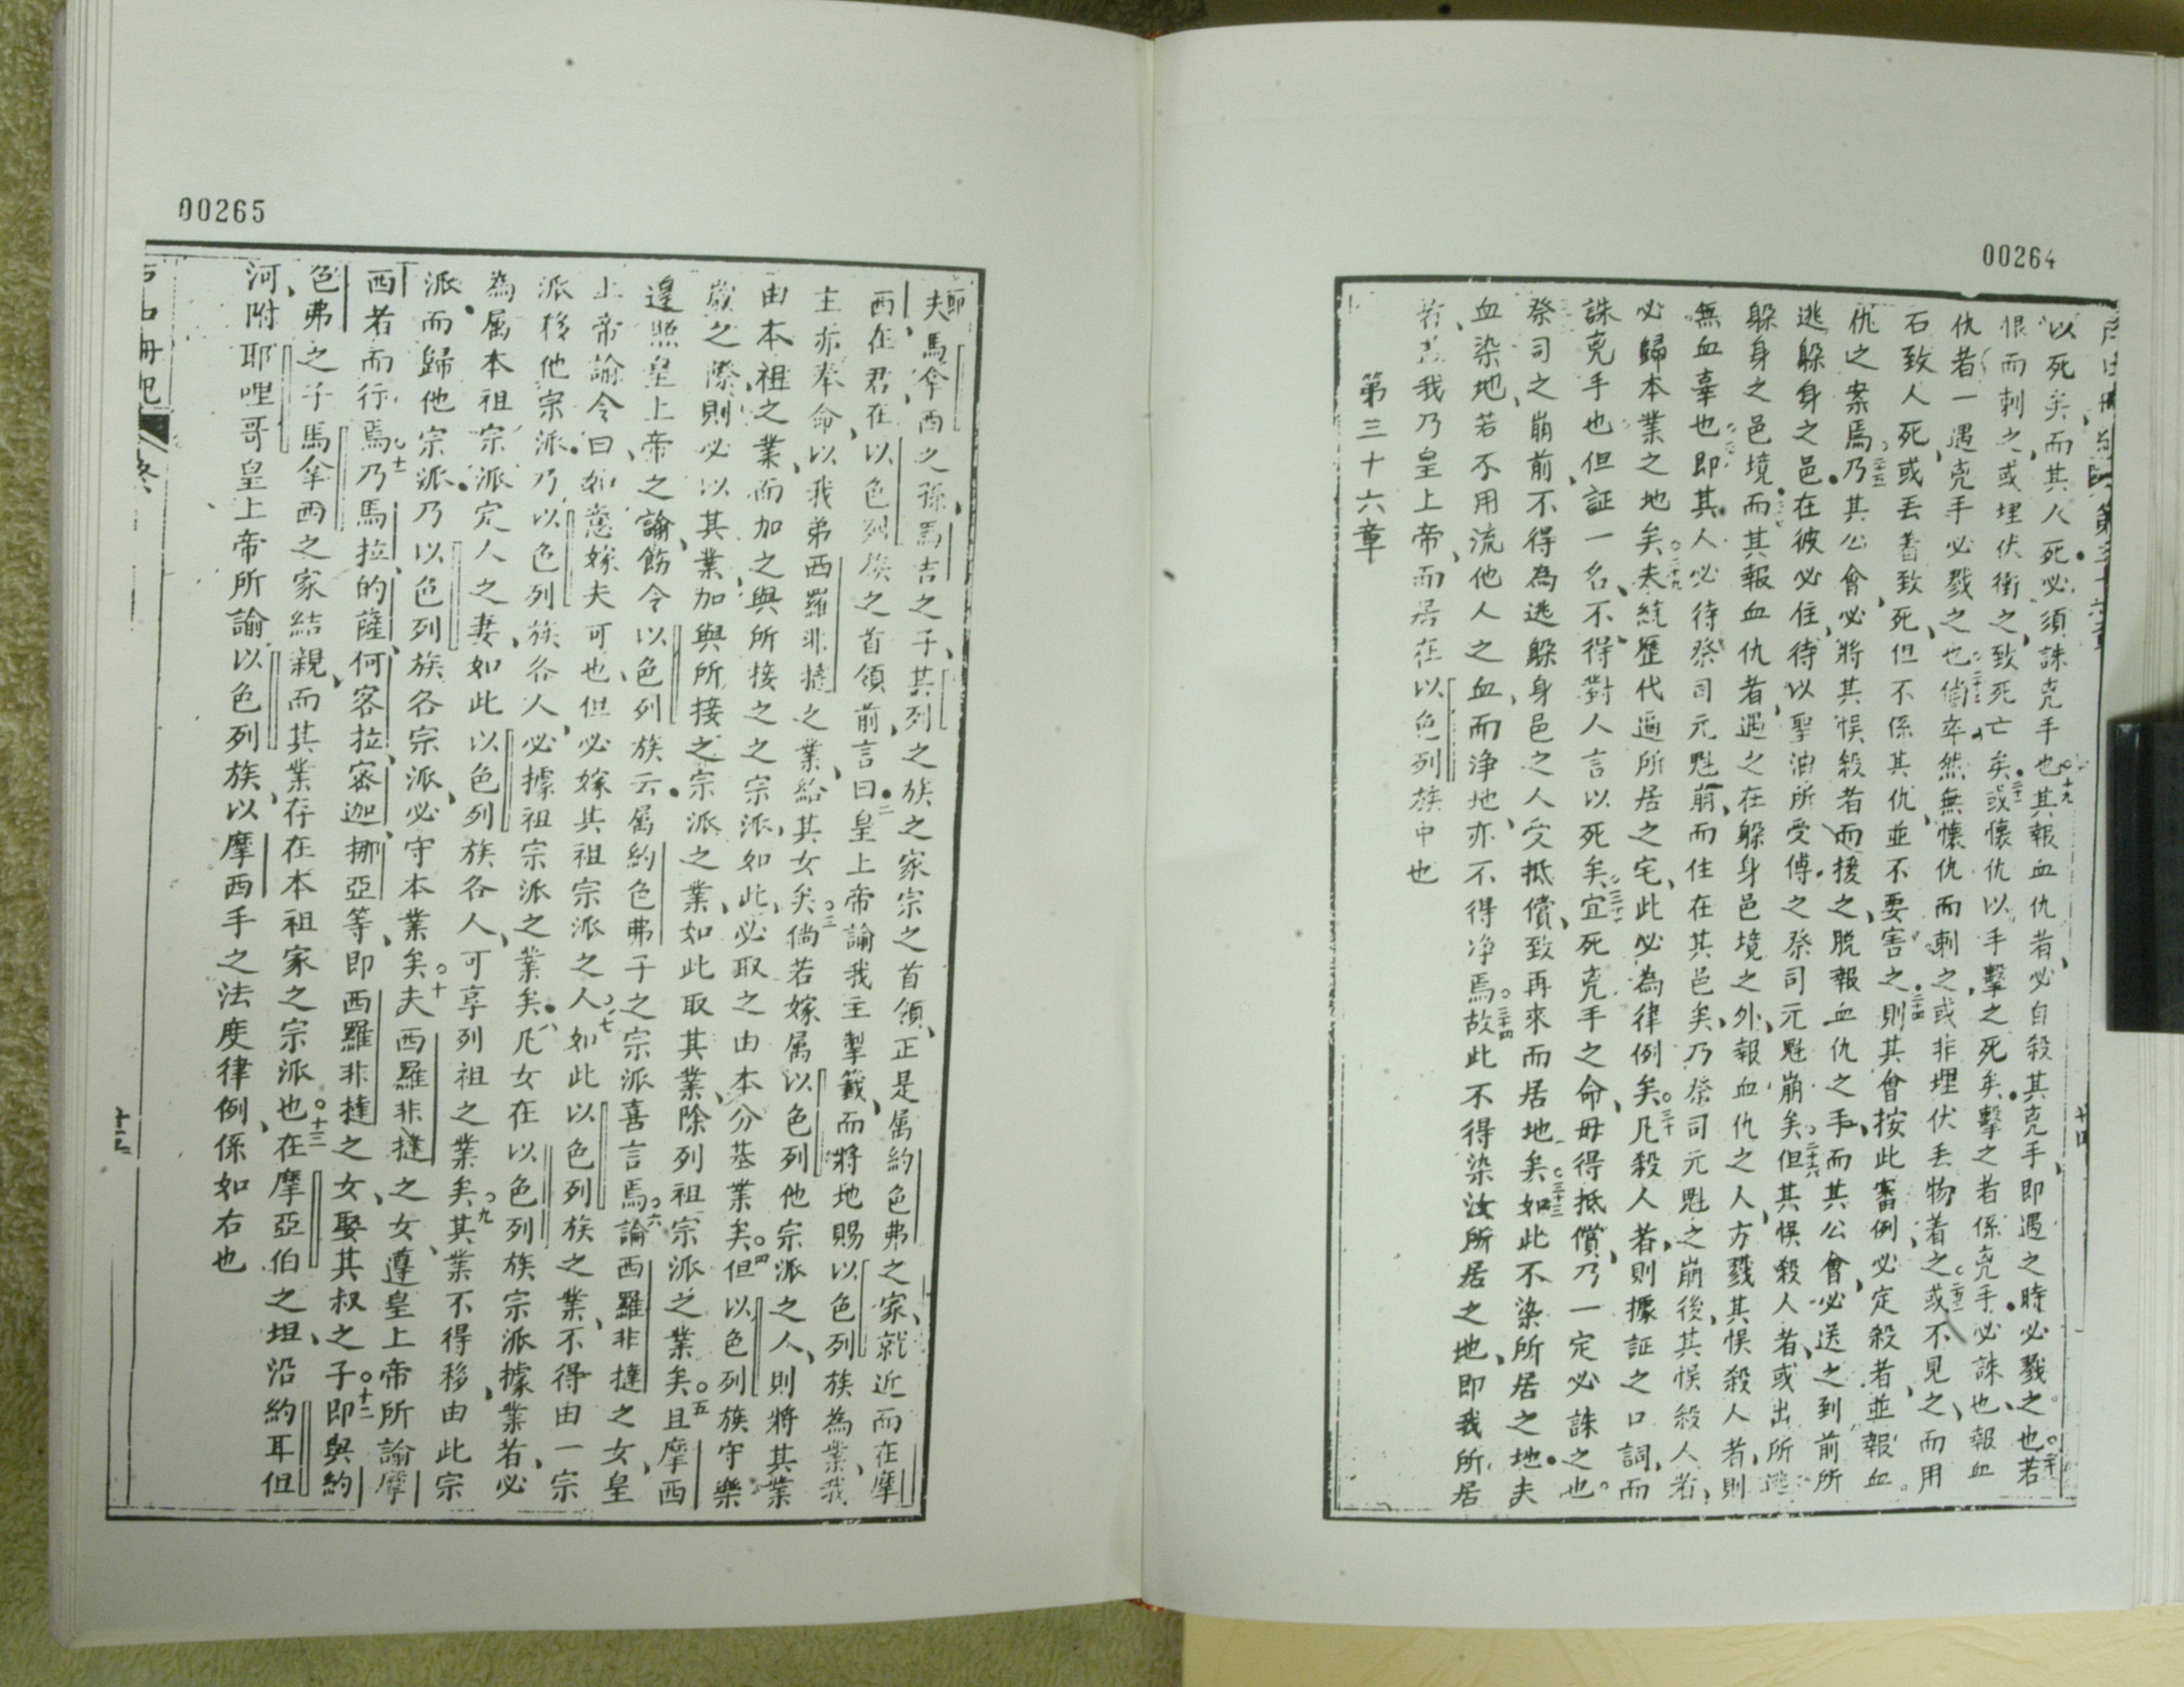 00264
以死矣而其人死必須誅兇手也十九其報血仇者必自殺其兇手即遇之時必戮之也二十若
恨而刺之或埋伏衝之致死亡矣二十一或懷仇以手擊之死矣擊之者係兇手必誅也報血
仇者一遇兇手必戮之也二十二倘卒然無懷仇而刺之或非埋伏丢物着之二十三或不見之而用
石致人死或丟着致死但不係其仇並不要害之二十四則其會按此審例必定殺者並報血
仇之案焉二十五乃其公會必將其悮殺者而援之脫報血仇之手而其公會必送之到前所
逃躲身之邑在彼必住待以聖油所受傅之祭司元魁崩矣二十六但其悮殺人者或出所逃
躲身之邑境而其報血仇者遇之在躲身邑境之外報血仇之人方戮其悮殺人者則
無血辜也即其人必待祭司元魁崩而住在其邑矣乃祭司元魁之崩後其悮殺人者
必歸本業之地矣二十九夫統歷代遍所居之宅此必為律例矣三十凡殺人者則據証之口詞而
誅兇手也但証一名不得對人言以死矣三十一宜死兇手之命毋得抵償乃一定必誅之也
祭司之崩前不得為逃躲身邑之人受抵償致再來而居地矣三十三如此不染所居之地夫
血染地若不用流他人之血而淨地亦不得净焉三十四故此不得染汝所居之地即我所居
若蓋我乃皇上帝而居在以色列族中也
第三十六章
00265
夫馬傘西之孫馬吉之子其列之族之家宗之首領正是属約色弗之家就近而在摩
西在君在以色列族之首領前言曰二皇上帝諭我主掣籤而將地賜以色列族為業我
主亦奉命以我弟西羅非撻之業給其女矣三倘若嫁属以色列他宗派之人則將其業
由本祖之業而加之與所接之之宗派如此必取之由本分基業矣四但以色列族守樂
歲之際則必以其業加與所接之宗派之業如此取其業除列祖宗派之業矣五且摩西
遑照皇上帝之諭飭令以色列族云属約色弗子之宗派喜言焉六論西羅非撻之女皇
上帝諭令曰如意嫁夫可也但必嫁其祖宗派之人七如此以色列族之業不得由一宗
派移他宗派乃以色列族各人必據祖宗派之業矣八凡女在以色列族宗派據業者必
為属本祖宗派宂人之妻如此以色列族各人可享列祖之業矣九其業不得移由此宗
派而歸他宗派乃以色列族各宗派必守本業矣十夫西羅非撻之女遵皇上帝所諭摩
西者而行焉十一乃馬拉的薩何客拉密迦挪亞等即西羅非撻之女娶其叔之子十二即與約
色弗之子馬傘西之家結親而其業存在本祖家之宗派也十三在摩亞伯之坦沿約耳但
河附耶哩哥皇上帝所諭以色列族以摩西手之法度律例係如右也
終